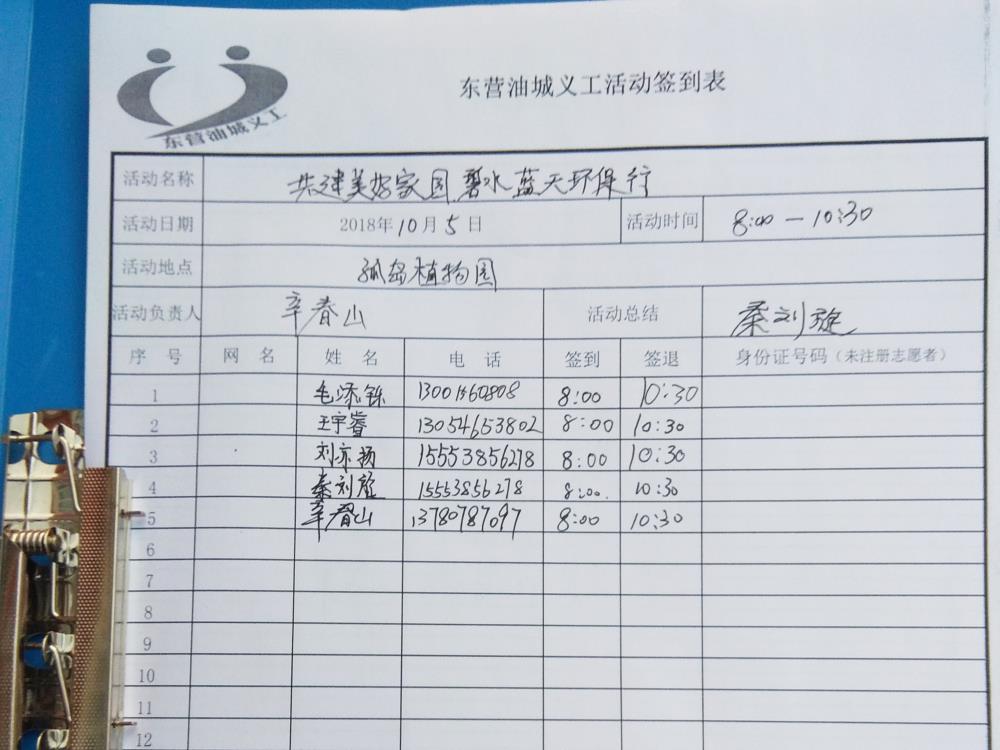 东营油城义工
东营油城义工活动签到表
活动名称 共建美好家园 碧水蓝天环保行
活动日期 2018年10月5日 活动时间 8:00—10:30
活动地点 孤岛植物园
活动负责人 辛春山 活动总结 秦刘旋
序 号 网 名 姓 名 电 话 签到 签退 身份证号码（未注册志愿者）
1 毛添铄 13001560808 8:00 10:30
2 王宇睿 13054653802 8:00 10:30
3 刘亦扬 15553856278 8:00 10:30
4 秦刘旋 15553856278 8:00. 10:30
5 辛春山 13780787097 8:00 10:30
6
7
8
9
10
11
12